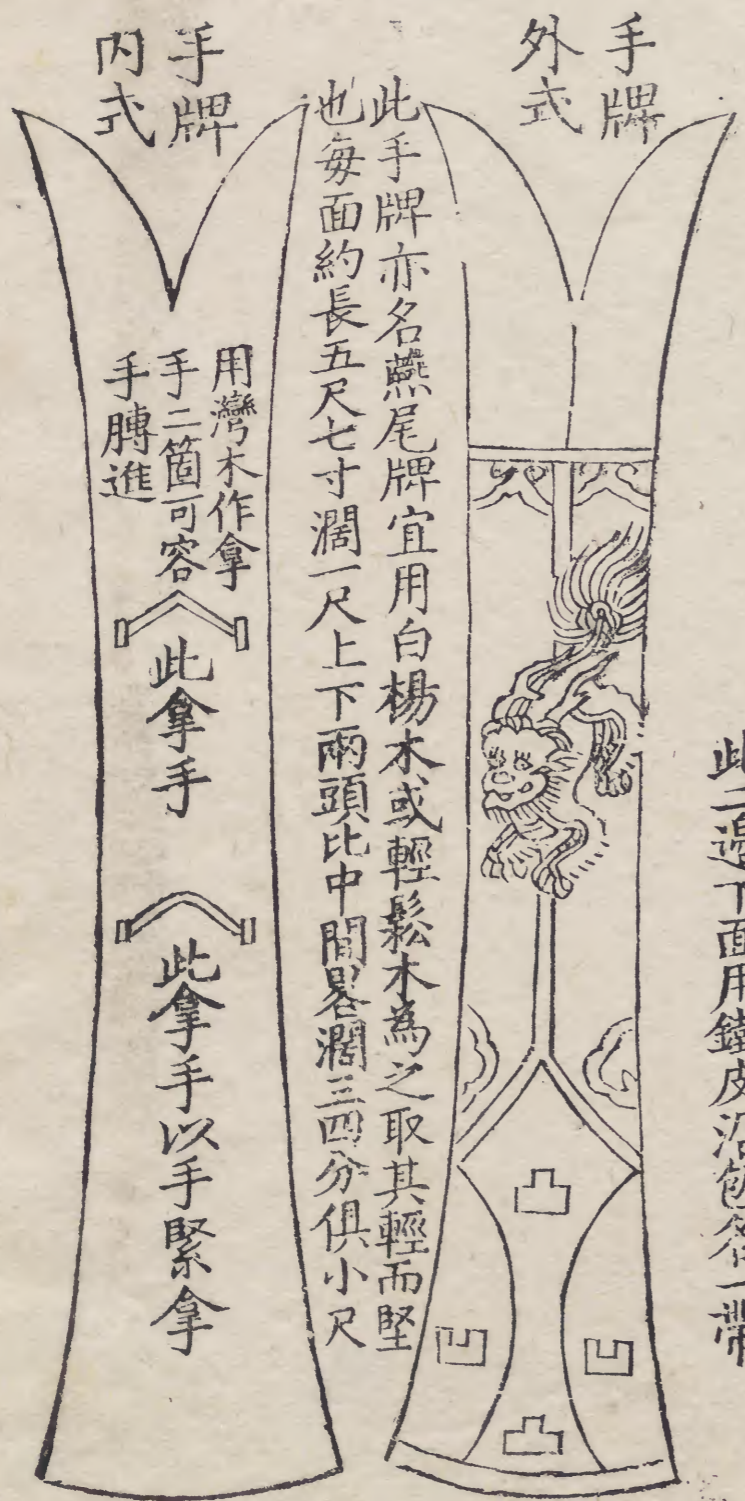 手牌
外式
此二邊下面用鐵皮沿包各一帶
此手牌亦名燕尾牌宜用白楊木或輕鬆木為之取其輕而堅
也每面約長五尺七寸濶一尺上下兩頭比中間畧濶三四分俱小尺
手牌
內式
用灣木作拿
手二箇可容
手膊進
此拿手
此拿手以手緊拿
凸
凹
凹
凸